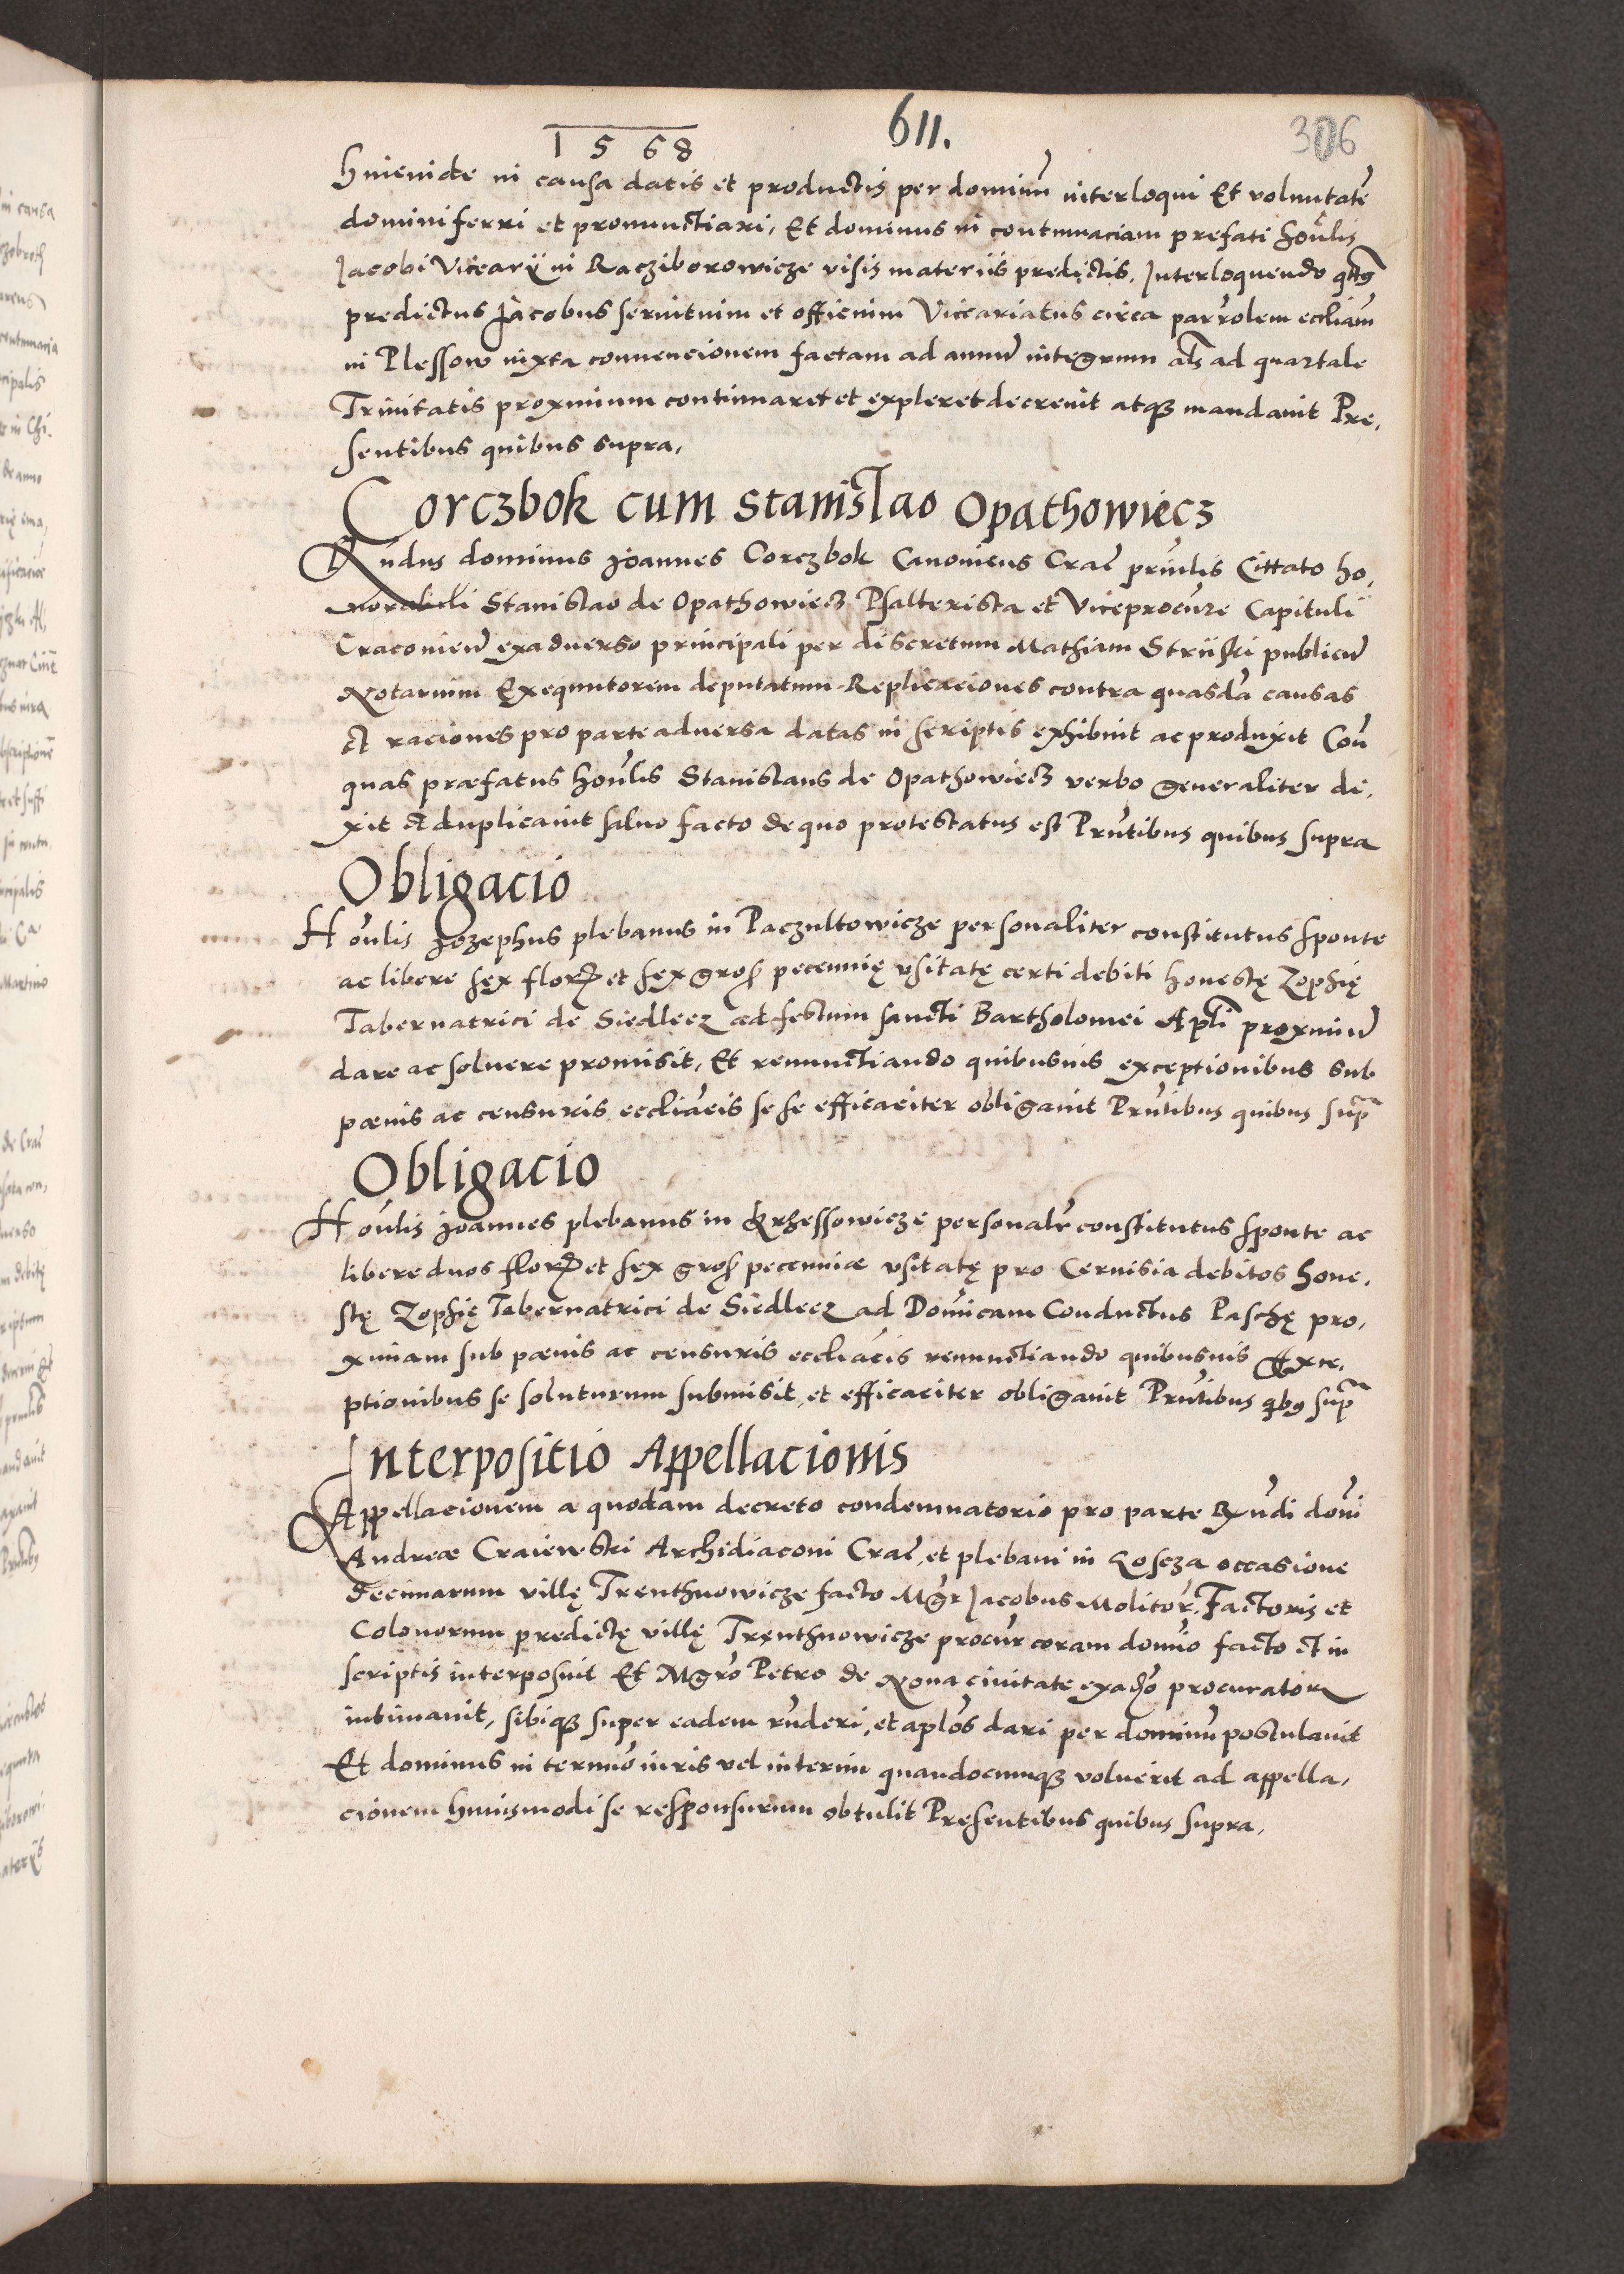 1568
611.
306
hincinde in causa datis et productis per dominũ interloqui Et voluntatẽ
domini ferri et pronunctiari, Et dominus in contumaciam prefati hoñlis
Jacobi Vicearÿ in Racziborowicze visis materiis predictis. Interloquendo
predictus Jacobus seruitium et officium Viceariatus circa parrolem eccliam̃
in Plessow iuxta conuencionem factam ad annũ integrum als̃ ad quartale
Trinitatis proximum continuaret et expleret decreuit atqȝ mandauit Pre,
sentibus quibus supra,
Corczbok cum Stanislao Opathowiecz
Rñdus dominus Joannes Corczbok Canonicus Crac̃ prin̄lis Cittato ho,
norabili Stanislao de Opathowiecz Psalterista et Viceprocur̃e Capituli
Cracouien̄ exaduerso principali per discretum Mathiam Striiski publicũ
Notarium Exequutorem deputatum Replicaciones contra quasdã causas
et raciones pro parte aduersa datas in scriptis exhibuit ac produxit Con̄
quas præfatus hon̄lis Stanislaus de Opathowiecz verbo generaliter di,
xit et duplicauit saluo facto de quo protestatus est Pr̃ntibus quibus supra
Obligacio
Hoñlis Jozephus plebanus in Paczultowicze personaliter constitutus sponte
ac libere sex flor et sex gros pecunię vsitatę certi debiti honestę Zophię
Tabernatrici de Siedlecz ad festum sancti Bartholomei Apl̃i proximũ
dare ac soluere promisit, Et renunctiando quibusuis exceptionibus sub
pænis ac censuris eccliãcis sese efficaciter obligauit Pr̃ntibus quibus sup̃
Obligacio
Hoñlis Joannes plebanus in Krzessowicze personalr̃ constitutus sponte ac
libere duos flor et sex gros pecuniæ vsitatę pro Ceruisia debitos hone,
stę Zophię Tabernatrici de Siedlecz ad Domĩcam Conductus Paschę pro,
ximam sub pænis ac censuris eccliãcis renunctiando quibusuis Exce,
ptionibus se soluturum submisit, et efficaciter obligauit Pr̃ntibus qibꝯ sup̃
Interpositio Appellacionis
Appellacionem a quodam decreto condemnatorio pro parte Rñdi doñi
Andreæ Craiewski Archidiaconi Crac̃, et plebani in Loscza occasione
decimarum villę Trenthnowicze facto Mgr̃ Jacobus Molitor, Factoris et
Colonorum predictę villę Trenthnowicze procur̃ coram domĩo facto et in
scriptis interposuit Et Mgr̃o Petro de Noua ciuitate exad̃o procuratore
intimauit, sibiqȝ super eadem rñderi, et apl̃os dari per dominũ postulauit
Et dominus in termĩo iuris vel interim quandocumqȝ voluerit ad appella,
cionem huiusmodi se responsurum obtulit Presentibus quibus supra,